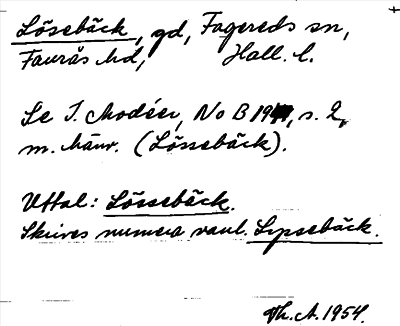 Lössebäck, gd, Fagereds sn,
Faurås hd, Hall. l.
Se I. Modéer, No B 19, s. 2,
m. hänv. (Lössebäck).
Uttal: Lössebäck.
Skrives numera vanl. Lyssebäck.
Th. A. 1954.